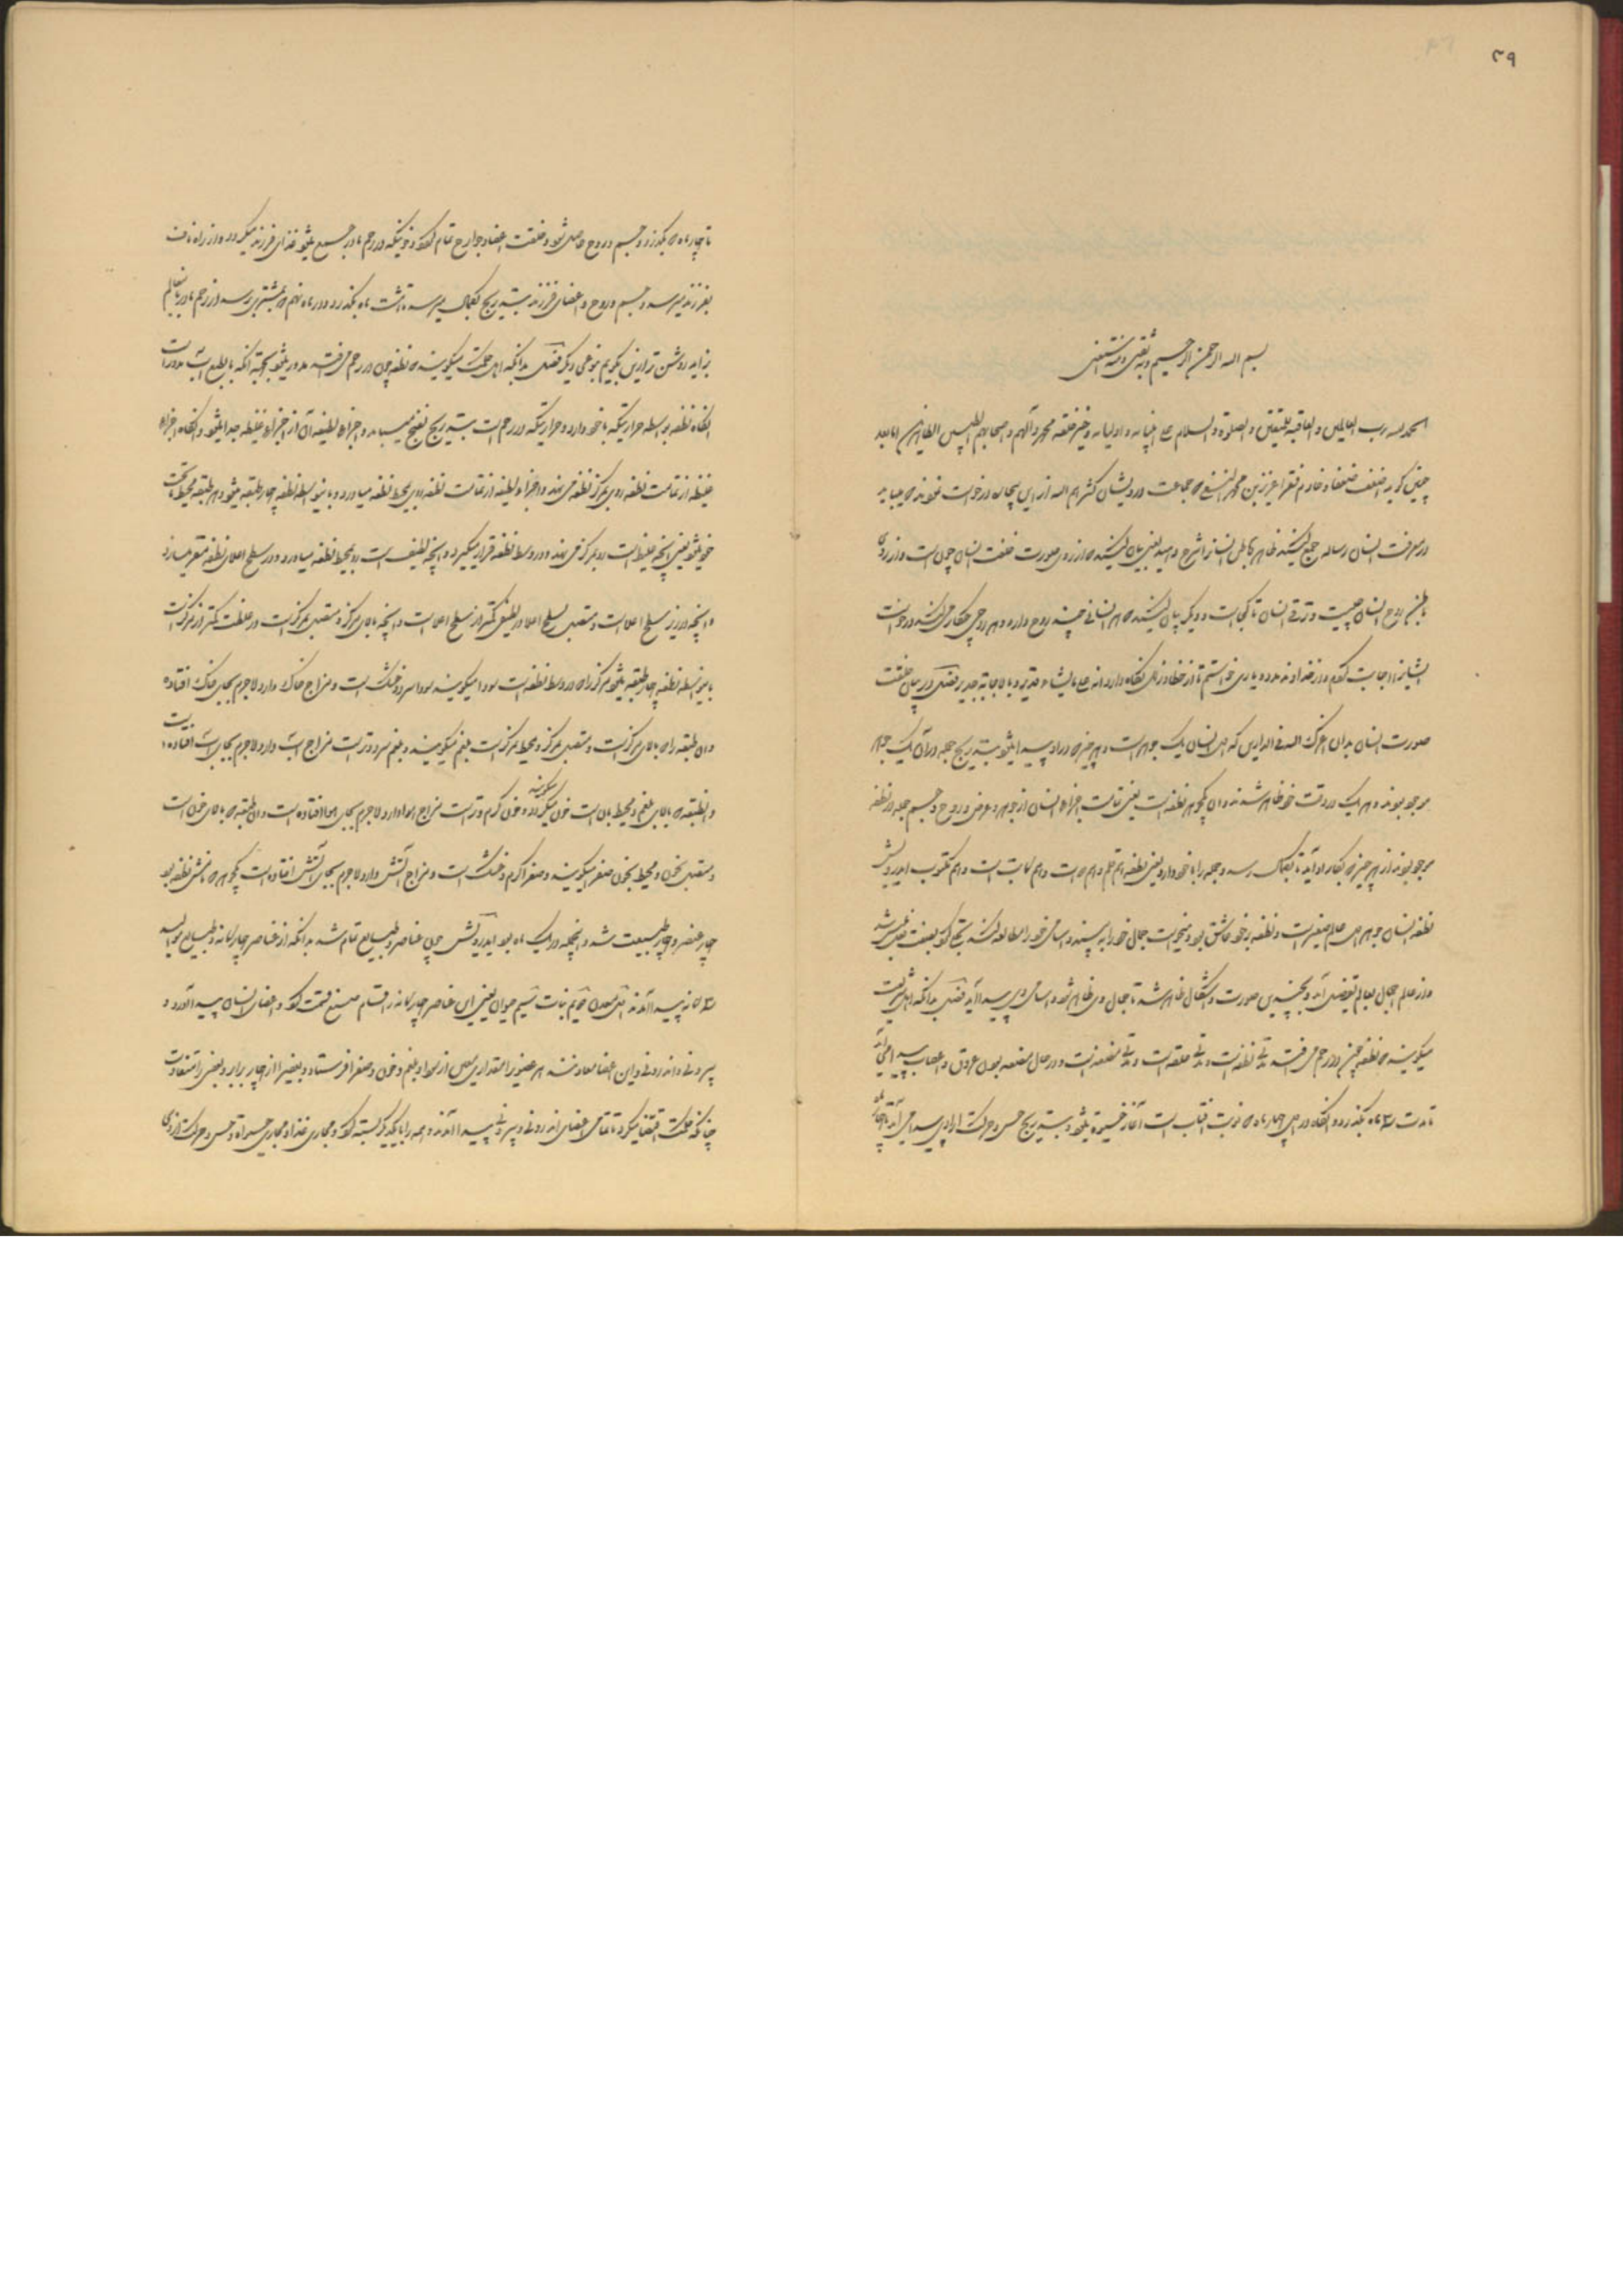 ۳۹
بسم الله الرحمن الرحیم و به ثقتی و نستعین
الحمد لله رب العالمین والعاقبة للمتقین والصلوة والسلام علی انبیائه واولیائه وخیر خلقه محمد وآلهم واصحابهم الطیبین الطاهرین اما بعد
چنین گوید اضعف ضعفا و خادم فقرا عزیز بن محمد النسفی که جماعت درویشان کثرهم الله ازین بیچاره درخواست نمودند که میباید
در معرفت انسان رساله جمع کنید ظاهر و باطن انسانرا شرح دهید یعنی بیان کنید که از روی صورت خلقت انسان چون است و از روی
باطن روح انسان چیست و ترقی انسان تا کجاست و دیگر بیان کنید که هر انسانی چند روح دارد و هر روحی چکار میکند درخواست
ایشانرا اجابت کردم و از خداوند مدد و یاری خواستم تا از خطا و زلل نگاه دارد انه علی ما یشاء قدیر و بالاجابة جدیر فصل در بیان خلقت
صورت انسان بدان اعزک الله فی الدارین که اول انسان یک جوهر است و هر چیز که در او پیدا میشود بتدریج جمله در آن یک جوهر
موجود بودند و هر یک در وقت خود ظاهر شدند و آن یکجوهر نطفه است یعنی تمامت اجزاء انسان از جوهر و عرض و روح و جسم جمله در نطفه
موجود بودند از هر چیز که بکار او آید تا بکمال رسد و جمله را با خود دارد یعنی نطفه هم قلم و هم دوات است و هم کاتب است و هم مکتوب ای درویش
نطفه انسان جوهر اول عالم صغیر است و نطفه بر خود عاشق بود و میخواست جمال خود را به بیند و اسامی خود را مطالعه کند تجلی کرد بصفت فعل متلبس شد
و از عالم اجمال بعالم تفصیل آمد و بچندین صورت و اشکال ظاهر شد تا جمال وی ظاهر شد و اسامی وی پیدا آید فصل بدانکه اهل شریعت
میگویند که نطفه چون در رحم می‌افتد مدتی نطفه است و مدتی علقه است و مدتی مضغه است و در حال مضغه بودن عروق و اعصاب پیدا می‌آید
تا مدت سه ماه بگذرد و آنگاه در اول چهارماه که نوبت آفتاب است آغاز حیوة میشود و بتدریج حس و حرکت ارادی پیدا می‌آید تا چهار
تا چهار ماه بگذرد و جسم و روح حاصل شود و خلقت اعضا و جوارح تمام گردد و خونیکه در رحم مادر جمع میشود غذای فرزند میگردد و از راه ناف
بفرزند میرسد و جسم و روح و اعضای فرزند بتدریج بکمال میرسد تا هشت ماه بگذرد و در ماه نهم که بمشتری رسد از رحم مادر باینعالم
بزاید روشن‌تر ازین بگویم بنوعی دیگر فصل بدانکه اهل حکمت میگویند که نطفه چون در رحم می‌افتد مدور میشود بجهة آنکه بالطبع آب مدور است
آنگاه نطفه بواسطه حرارتیکه با خود دارد و حرارتیکه در رحم است بتدریج نضج میـیابد و اجزاء لطیفه آن از اجزاء غلیظه جدا میشود و آنگاه اجزاء
غلیظه از تمامت نطفه روی بمرکز نطفه می‌نهند و اجزاء لطیفه از تمامت نطفه روی بمحیط نطفه میاورد و باینواسطه نطفه چهار طبقه میشود و هر طبقه محیط ما تحت
خود میشود یعنی آنچه غلیظ است رو بمرکز می‌نهد و در وسط نطفه قرار میگیرد و آنچه لطیف است رو بمحیط نطفه میاورد و در سطح اعلای نطفه مقر میسازد
و آنچه در زیر سطح اعلا است و متصل بسطح اعلا در لطیفی کمتر از سطح اعلا است و آنچه بالای مرکز و متصل بمرکز است در غلظت کمتر از مرکز است
باینواسطه نطفه چهار طبقه میشود مرکز را که در وسط نطفه است سودا میگویند سودا سرد و خشک است و مزاج خاک دارد لاجرم بجای خاک افتاده است
و آن طبقه را که بالای مرکز است و متصل بمرکز و محیط مرکز است بلغم میگویند و بلغم سرد و تر است مزاج آب دارد لاجرم بجای آب افتاده
و آنطبقه که بالای بلغم و محیط بآن است خون میگویند و خون گرم و تر است مزاج هوا دارد لاجرم بجای هوا افتاده است و آن طبقه که بالای خون است
و متصل بخون و محیط بخون صفرا میگویند و صفرا گرم و خشک است و مزاج آتش دارد لاجرم بجای آتش افتاده است یکجوهر که نامش نطفه بود
چهار عنصر و چهار طبیعت شد و اینجمله در یک ماه بود ای درویش چون عناصر و طبایع تمام شد بدانکه از عناصر چهارگانه و طبایع موالید
سه گانه پیدا آمدند اول معدن دویم نبات سیم حیوان یعنی این عناصر چهارگانه را قسام صنع قسمت کرد و اعضای انسان پیدا آورد و
بیرونی و اندرونی و این اعضا معادنند هر عضویرا مقداری معین از سودا و بلغم و خون و صفرا فرستاد و بعضیرا از چهار برابر و بعضی را متفاوت
چنانکه حکمت اقتضا میکرد تا تمامی اعضای اندرونی و بیرونی پیدا آمدند و همه را با یکدیگر بسته کرد و مجاری غذا و مجاری حیوة و حس و حرکت ارادی